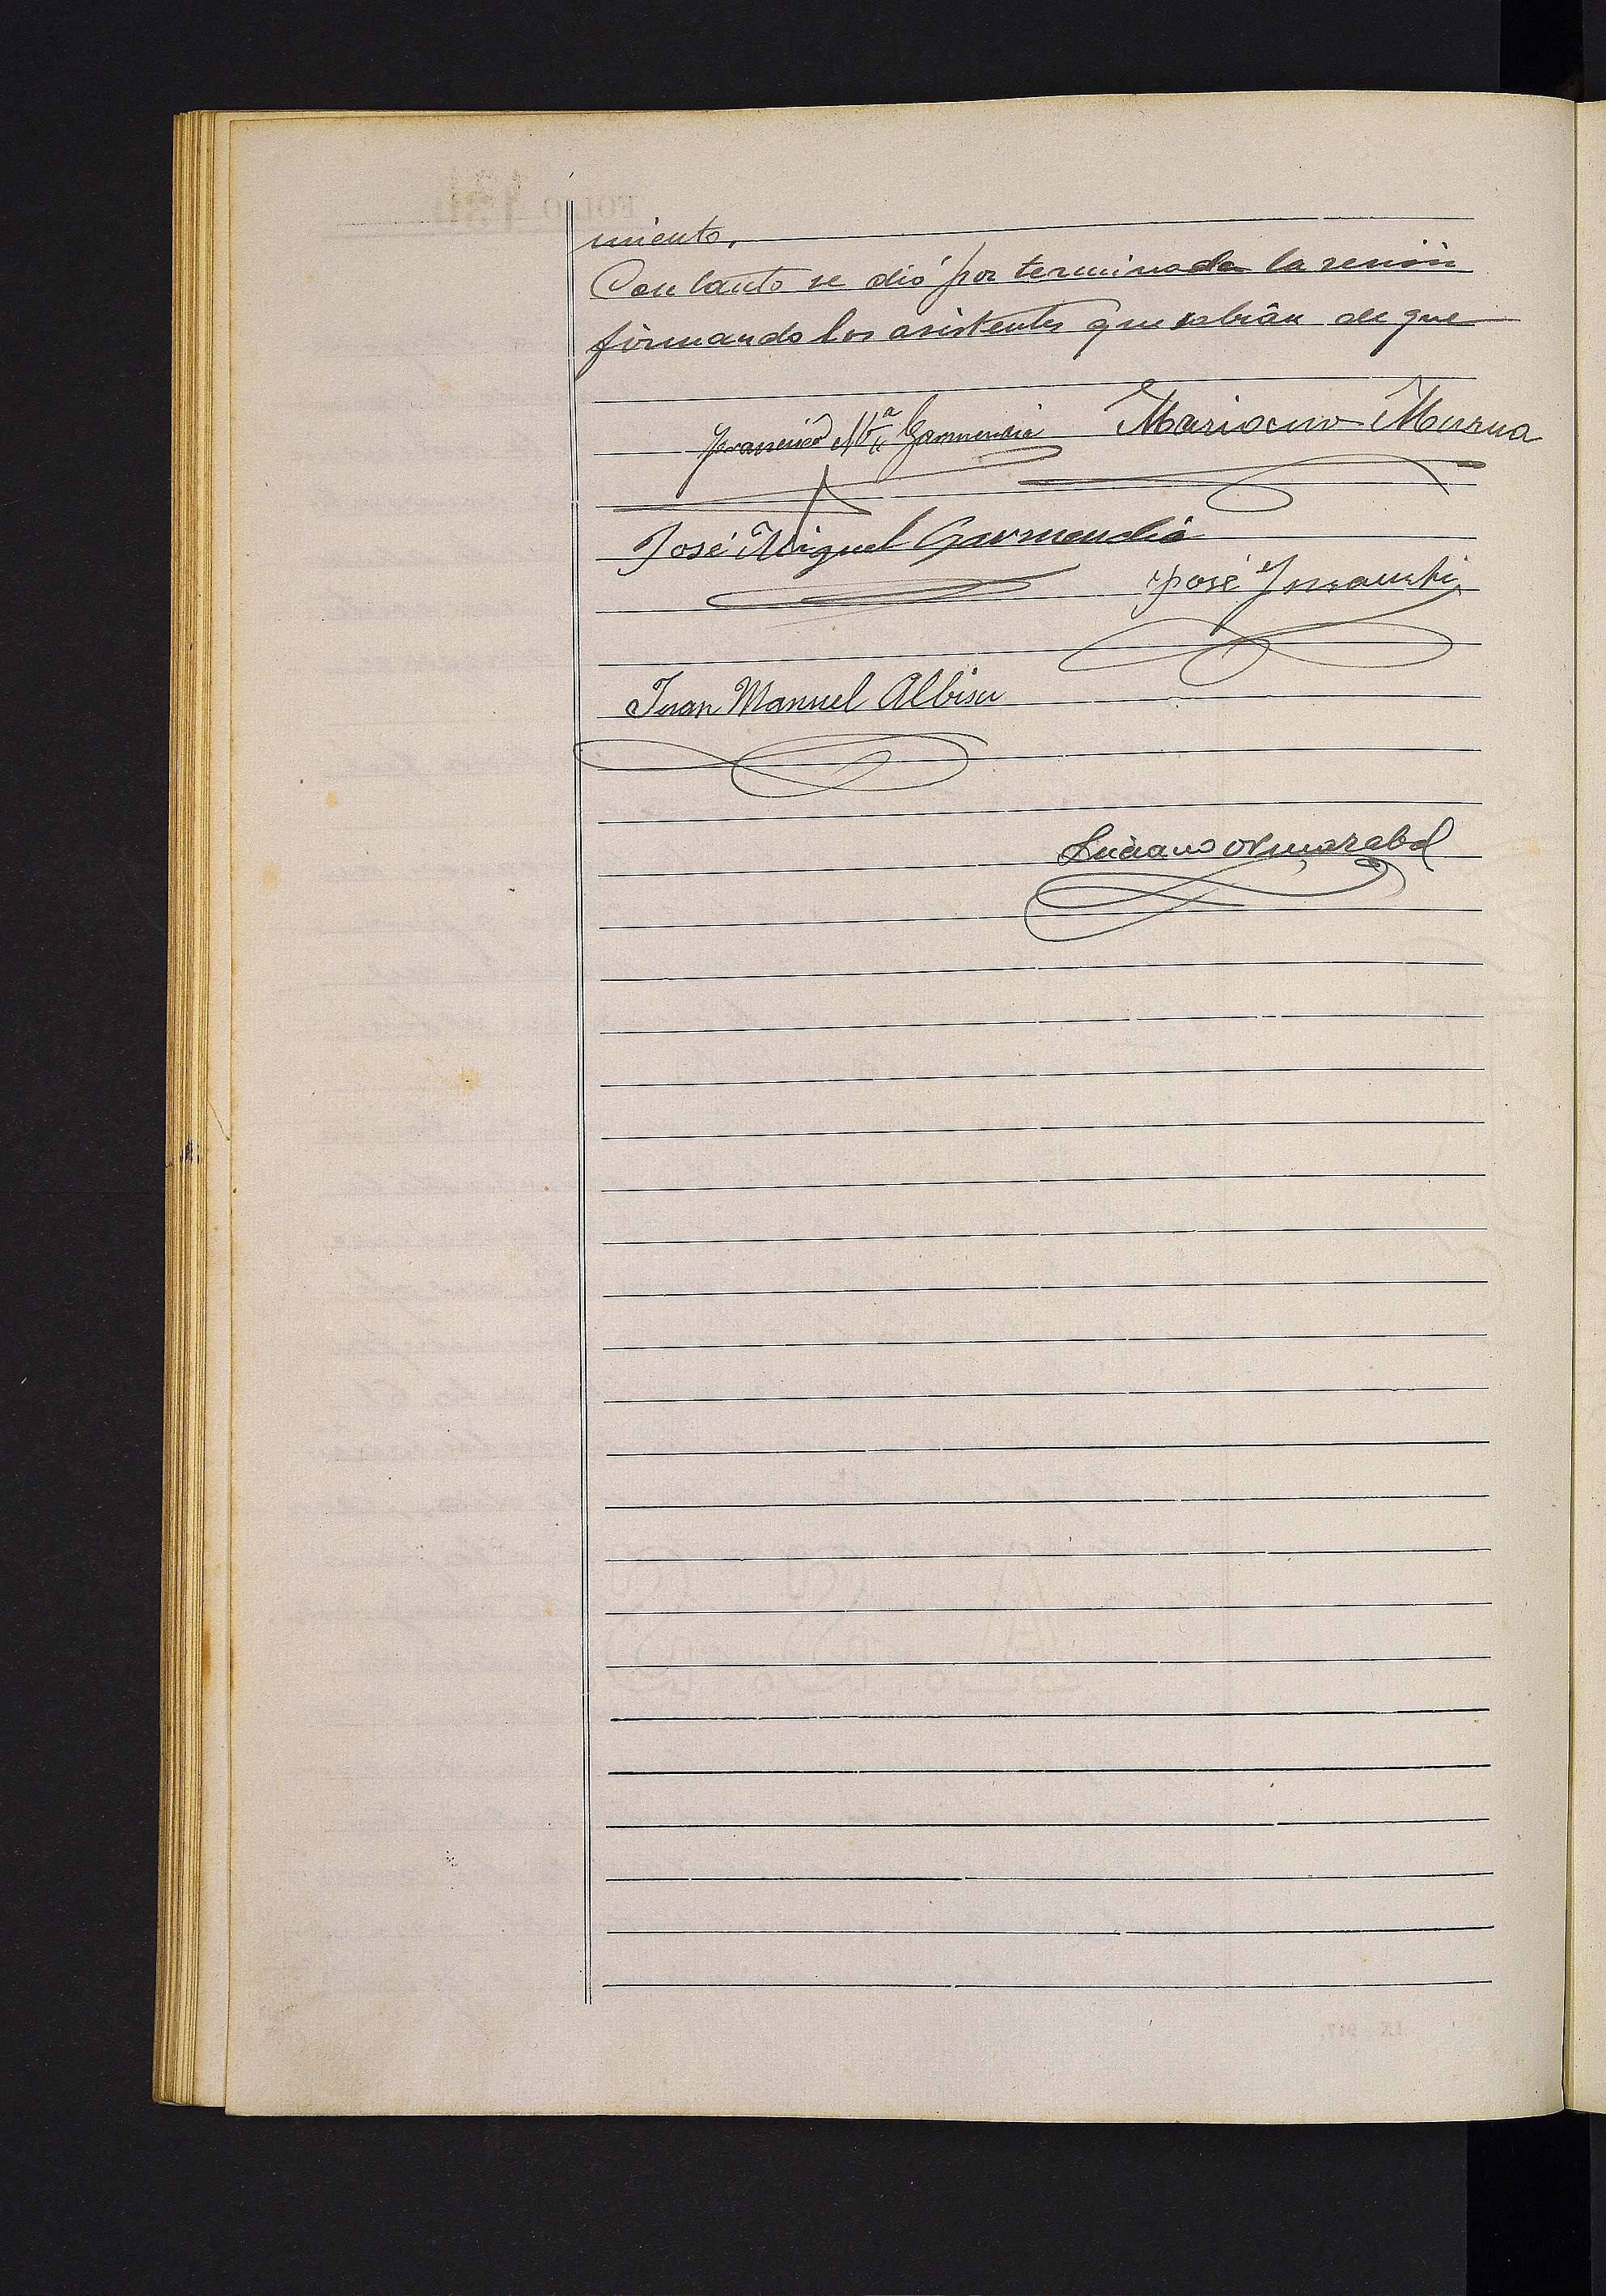 miento.
Con tanto se dió por terminada la sesión
firmando los asistentes que sabian de que
Francisco Mª Garmendia Mariano Murua
José Miguel Garmendia
José Insausti
Juan Manuel Albisu
Luciano